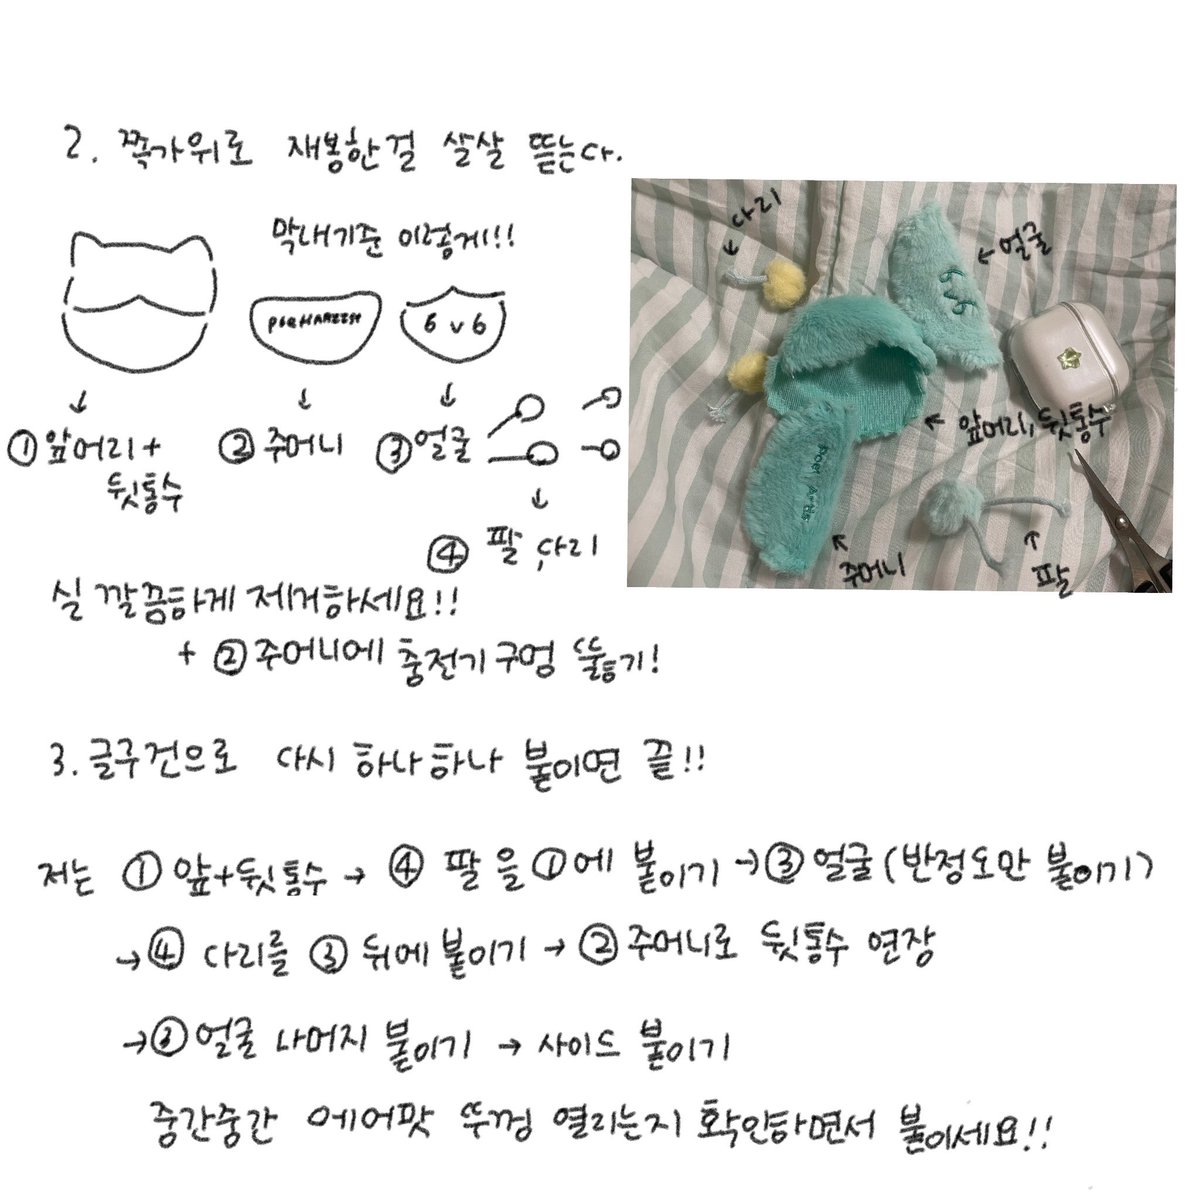 2. 쪽가위로 재봉한걸 살살 뜯는다.
막내기준 이렇게!!
6 v 6
↓
①앞머리+
뒷통수
↓
②주머니
↓
③얼굴
↓
④ 팔, 다리
←다리
←얼굴
←앞머리, 뒷통수
Poer Artis
↑
주머니
↑
팔
실 깔끔하게 제거하세요!!
+ ②주머니에 충전기구멍 뚫등기!
3. 글루건으로 다시 하나하나 붙이면 끝!!
저는 ①앞+뒷통수→④ 팔을①에 붙이기→③얼굴(반정도만 붙이기)
→④ 다리를 ③ 뒤에 붙이기→②주머니로 뒷통수 연장
→③얼굴 나머지 붙이기→사이드 붙이기
중간중간 에어팟 뚜껑 열리는지 확인하면서 붙이세요!!